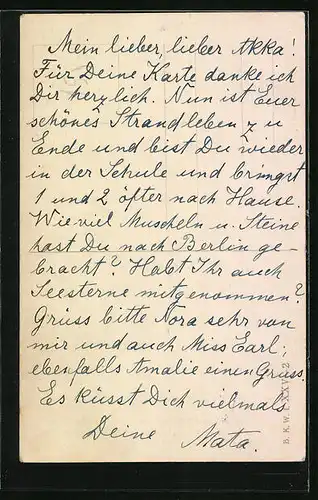 Mein lieber, lieber Akka!
Für Deine Karte danke ich
Dir herzlich. Nun ist Euer
schönes Strandleben zu
Ende und bist Du wieder
in der Schule und bringst
1 und 2 öfter nach Hause.
Wie viel Muscheln u. Steine
hast Du nach Berlin ge-
bracht? Habt Ihr auch
Seesterne mitgenommen?
Grüss bitte Nora sehr von
mir und auch Miss Earl;
ebenfalls Amalie einen Gruss.
Es küsst Dich vielmals
Deine Mata.
B.K.W.I.